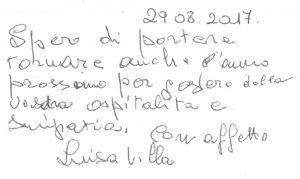 29 08. 2017.
Spero di potere
tornare anche l'anno
prossimo per godere della
vostra ospitalità e
simpatia.
Con affetto
Luisa Villa